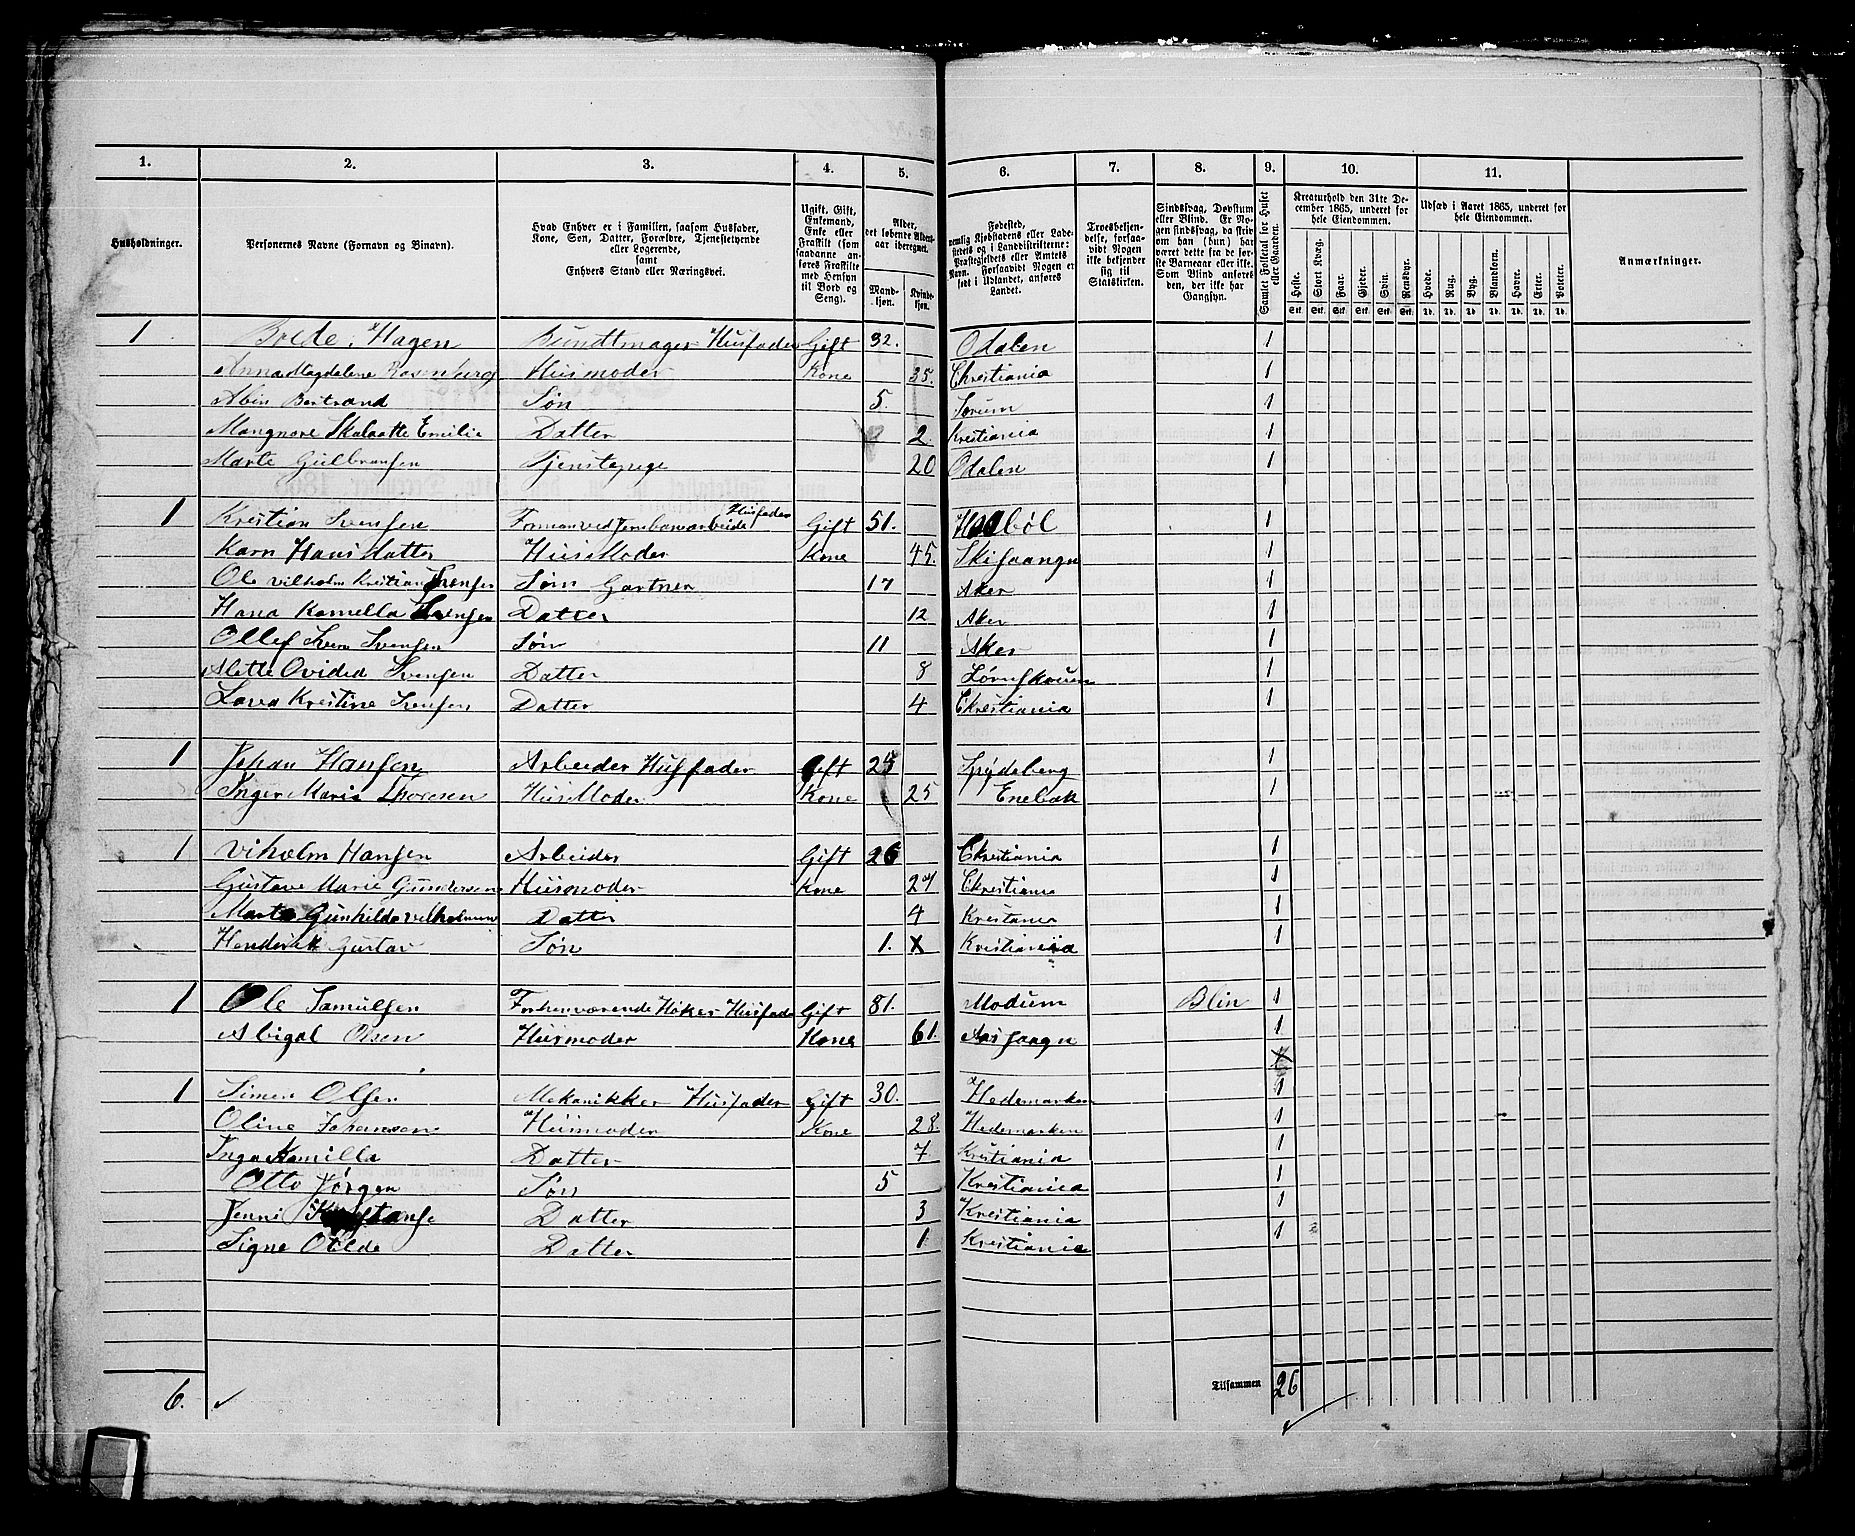 1. 2. 3. 4. 5. 6. 7. 8. 9. 10. 11.
Husholdninger.
Personernes Navne (Fornavn og Binavn).
Hvad Enhver er i Familien, saasom Husfader, Kone, Søn, Datter, Forældre, Tjenestetyende eller Logerende, samt Enhvers Stand eller Næringsvei.
Ugift, Gift, Enkemand, Enke eller Fraskilt (som saadanne anføres Fraskilte med Hensyn til Bord og Seng).
Alder, det løbende Aldersaar iberegnet.
Mandkjøn. Kvindekjøn.
Fødested, nemlig Kjøbstadens eller Ladestedets og i Landdistrikterne: Præstegjeldets eller Amtets Navn. Forsaavidt Nogen er født i Udlandet, anføres Landet.
Troesbekjendelse, forsaavidt Nogen ikke bekjender sig til Statskirken.
Sindssvag, Døvstum eller Blind. Er Nogen sindssvag, da skrives om han (hun) har været dette fra de første Barneaar eller ikke. Som Blind anføres den, der ikke har Gangsyn.
Samlet Folketal for Huset eller Gaarden.
Kreaturhold den 31te December 1865, underet for hele Eiendommen.
Udsæd i Aaret 1865, underet for hele Eiendommen.
Anmærkninger.
Heste. Stort Kvæg. Faar. Gjeder. Svin. Rensdyr. Hvede. Rug. Byg. Blandkorn. Havre. Erter. Poteter.
Stk. Stk. Stk. Stk. Stk. Stk. Td. Td. Td. Td. Td. Td. Td.
1 Hagen Bundtmager Husfader Gift 32. Odalen 1
Anna Magdalene Rosenburg Husmoder Kone 35. Christiania 1
Albin Bertrand Søn 5. Sørum 1
Emilie Datter 2. Kristiania 1
Marte Gulbransen Tjenstepige 20 Odalen 1
1 Kristian Svensen Forman ved Jernbanearbeide Husfader Gift 51. Haabøl 1
Karn Hansdatter HusModer Kone 45. Ski 1
Ole Vilholm Kristian Svensen Søn Gartner 17 Aker 1
Hana Kamella Svensen Datter 12 Aker 1
Ollef Sven Svensen Søn 11 Aker 1
Alette Ovided Svensen Datter 8 Lørnskouen 1
Lova Kristine Svensen Datter 4 Christiania 1
1 Johan Hansen Arbeider Husfader Gift 25 Spydeberg 1
Inger Marie Thoresen HusModer Kone 25 Enebak 1
1 Viholm Hansen Arbeider Gift 26 Christiania 1
Gustave Marie Gundersen Husmoder Kone 27 Christiania 1
Marta Gunhilda Datter 4 1
Henderik Gustav Søn 1. x Kristiania 1
1 Ole Samulsen Forhenværende Høker Husfader Gift 81. Modum Blin 1
Abigal Olsen Husmoder Kone 61. Aas 1
x
1 Simen Olsen Mekanikker Husfader Gift 30. Hedemarken 1
Oline Johansen Husmoder Kone 28. Hedemarken 1
Inga Kamilla Datter 7 Kristiania 1
Otto Jørgen Søn 5 Kristiania 1
Jenni Konstanse Datter 3 Kristiania 1
Signe Otilde Datter 1 Kristiania 1
6. Tilsammen 26